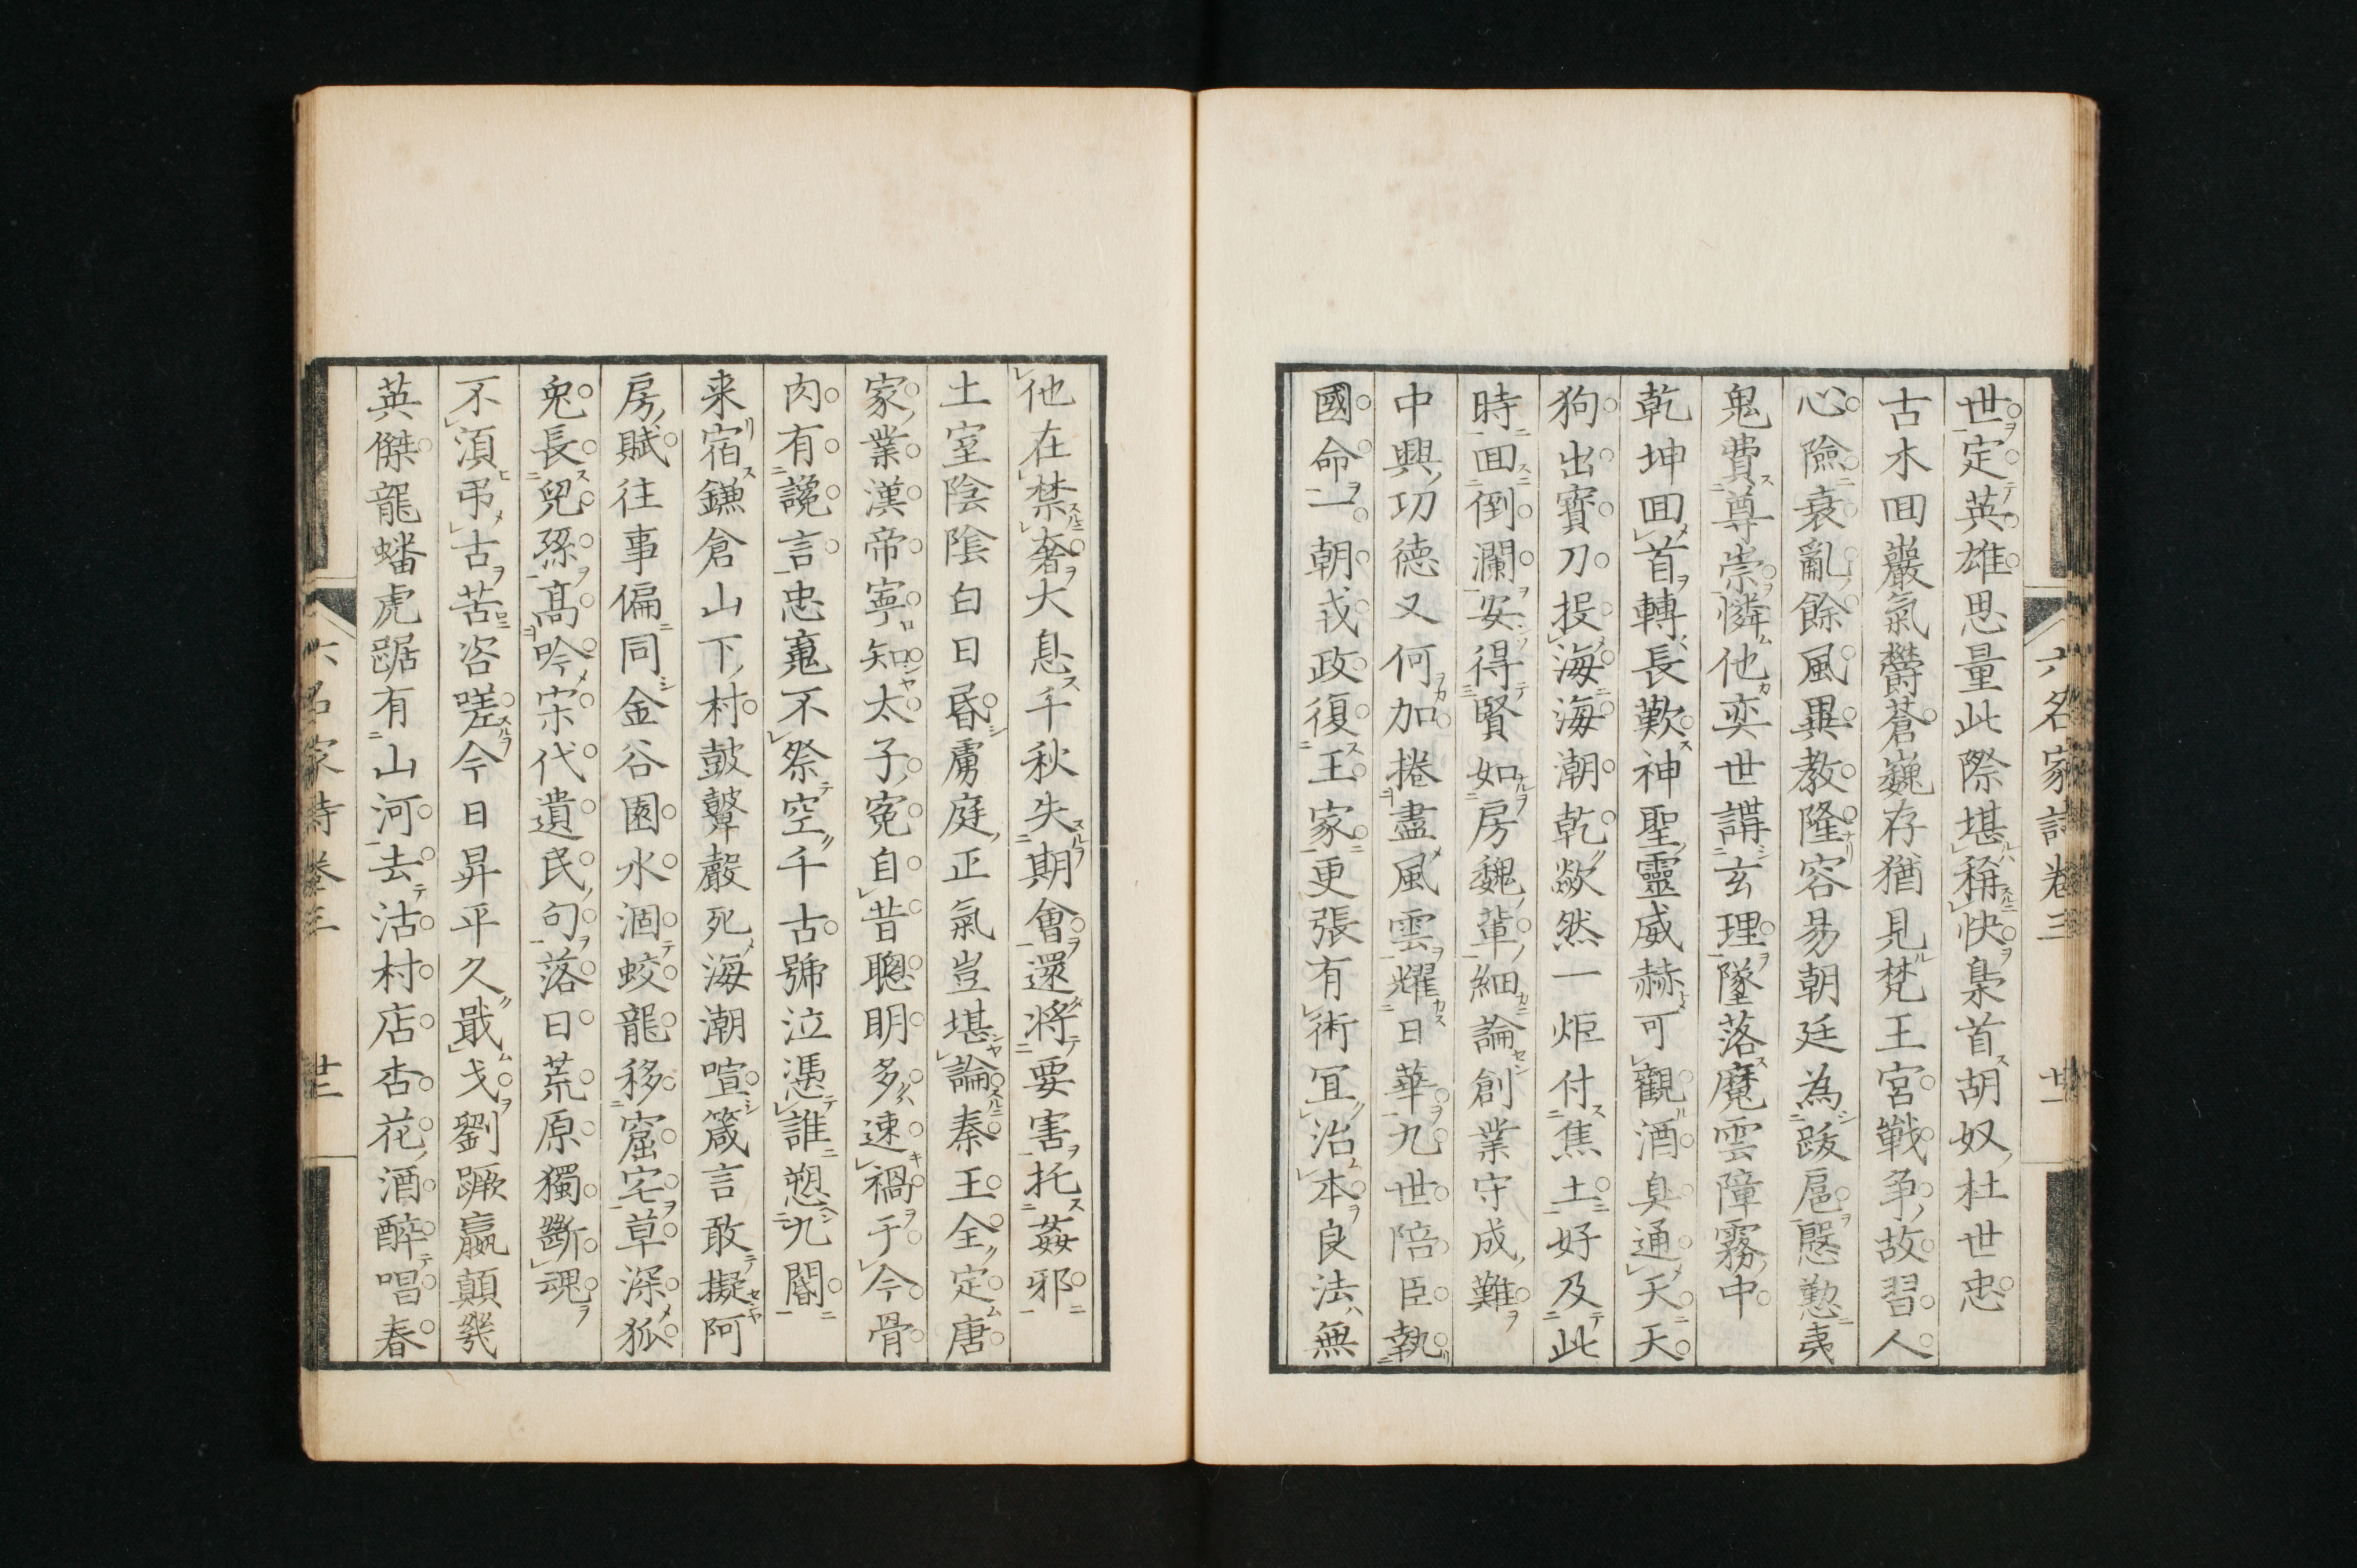 六名家詩卷三 廿一
世定英雄思量此際堪稱快梟首胡奴杜世忠
古木回巖氣欝蒼巍存猶見梵王宮戰爭故習人
心險衰亂餘風異教隆容易朝廷為跋扈慇懃夷
鬼費尊崇憐他奕世講玄理墜落魔雲障霧中
乾坤回首轉長歎神聖靈威赫可觀酒臭通天天
狗出寶刀投海海潮乾歘然一炬付焦土好及此
時回倒瀾安得賢如房魏輩細論創業守成難
中興功德又何加捲盡風雲耀日華九世陪臣執
國命一朝戎政復王家更張有術宜治本良法無
他在禁奢大息千秋失期會還將要害托姦邪
土室陰陰白日昏虜庭正氣豈堪論秦王全定唐
家業漢帝寧知太子冤自昔聰明多速禍于今骨
肉有讒言忠嵬不祭空千古號泣憑誰愬九閽
来宿鎌倉山下村鼓鼙聲死海潮喧箴言敢擬阿
房賦往事偏同金谷園水涸蛟龍移窟宅草深狐
兔長兒孫高吟宋代遺民句落日荒原獨斷魂
不湏弔古苦咨嗟今日昇平久戢戈劉蹶嬴顛幾
英傑龍蟠虎踞有山河去沽村店杏花酒醉唱春
六名家詩卷三 廿二